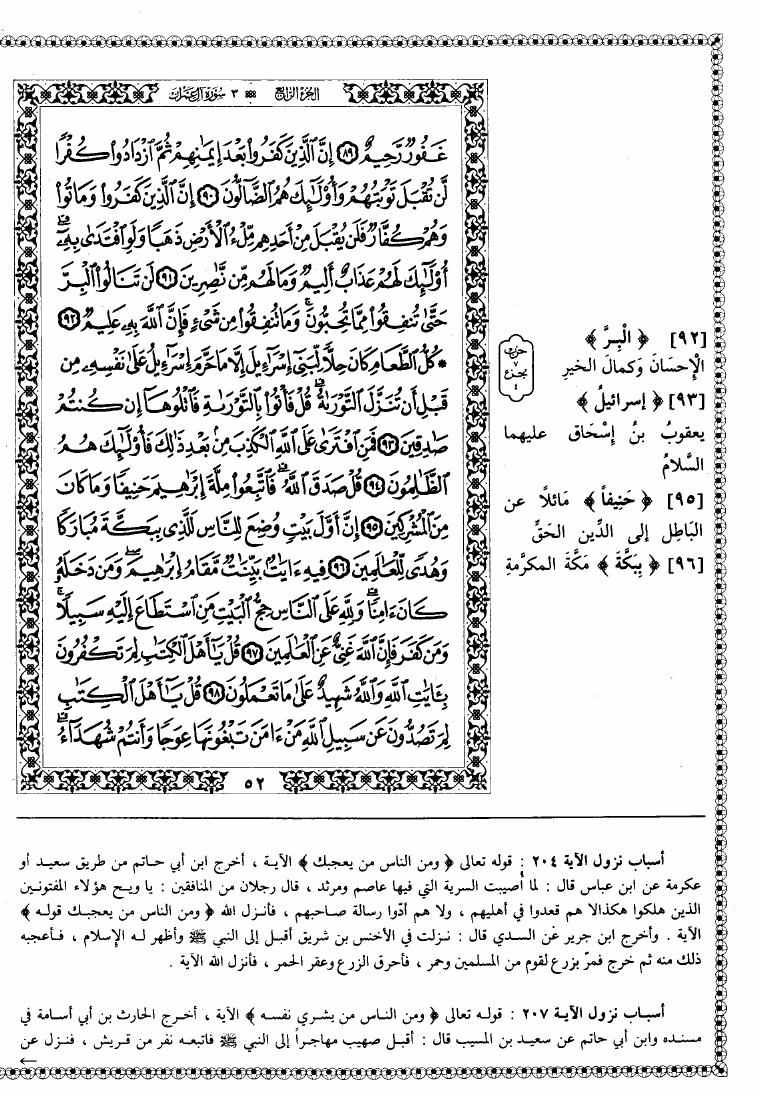 الجزء الرابع ٣ سورة آل عمران
غَفُورٌ رَّحِيمٌ ﴿٨٩﴾ إِنَّ ٱلَّذِينَ كَفَرُوا۟ بَعْدَ إِيمَـٰنِهِمْ ثُمَّ ٱزْدَادُوا۟ كُفْرًا
لَّن تُقْبَلَ تَوْبَتُهُمْ وَأُو۟لَـٰٓئِكَ هُمُ ٱلضَّآلُّونَ ﴿٩٠﴾ إِنَّ ٱلَّذِينَ كَفَرُوا۟ وَمَاتُوا۟
وَهُمْ كُفَّارٌ فَلَن يُقْبَلَ مِنْ أَحَدِهِم مِّلْءُ ٱلْأَرْضِ ذَهَبًا وَلَوِ ٱفْتَدَىٰ بِهِۦٓ ۗ
أُو۟لَـٰٓئِكَ لَهُمْ عَذَابٌ أَلِيمٌ وَمَا لَهُم مِّن نَّـٰصِرِينَ ﴿٩١﴾ لَن تَنَالُوا۟ ٱلْبِرَّ
حَتَّىٰ تُنفِقُوا۟ مِمَّا تُحِبُّونَ ۚ وَمَا تُنفِقُوا۟ مِن شَىْءٍ فَإِنَّ ٱللَّهَ بِهِۦ عَلِيمٌ ﴿٩٢﴾
* كُلُّ ٱلطَّعَامِ كَانَ حِلًّا لِّبَنِىٓ إِسْرَٰٓءِيلَ إِلَّا مَا حَرَّمَ إِسْرَٰٓءِيلُ عَلَىٰ نَفْسِهِۦ مِن
قَبْلِ أَن تُنَزَّلَ ٱلتَّوْرَىٰةُ ۗ قُلْ فَأْتُوا۟ بِٱلتَّوْرَىٰةِ فَٱتْلُوهَآ إِن كُنتُمْ
صَـٰدِقِينَ ﴿٩٣﴾ فَمَنِ ٱفْتَرَىٰ عَلَى ٱللَّهِ ٱلْكَذِبَ مِنۢ بَعْدِ ذَٰلِكَ فَأُو۟لَـٰٓئِكَ هُمُ
ٱلظَّـٰلِمُونَ ﴿٩٤﴾ قُلْ صَدَقَ ٱللَّهُ ۗ فَٱتَّبِعُوا۟ مِلَّةَ إِبْرَٰهِيمَ حَنِيفًا وَمَا كَانَ
مِنَ ٱلْمُشْرِكِينَ ﴿٩٥﴾ إِنَّ أَوَّلَ بَيْتٍ وُضِعَ لِلنَّاسِ لَلَّذِى بِبَكَّةَ مُبَارَكًا
وَهُدًى لِّلْعَـٰلَمِينَ ﴿٩٦﴾ فِيهِ ءَايَـٰتٌۢ بَيِّنَـٰتٌ مَّقَامُ إِبْرَٰهِيمَ ۖ وَمَن دَخَلَهُۥ
كَانَ ءَامِنًا ۗ وَلِلَّهِ عَلَى ٱلنَّاسِ حِجُّ ٱلْبَيْتِ مَنِ ٱسْتَطَاعَ إِلَيْهِ سَبِيلًا ۚ
وَمَن كَفَرَ فَإِنَّ ٱللَّهَ غَنِىٌّ عَنِ ٱلْعَـٰلَمِينَ ﴿٩٧﴾ قُلْ يَـٰٓأَهْلَ ٱلْكِتَـٰبِ لِمَ تَكْفُرُونَ
بِـَٔايَـٰتِ ٱللَّهِ وَٱللَّهُ شَهِيدٌ عَلَىٰ مَا تَعْمَلُونَ ﴿٩٨﴾ قُلْ يَـٰٓأَهْلَ ٱلْكِتَـٰبِ
لِمَ تَصُدُّونَ عَن سَبِيلِ ٱللَّهِ مَنْ ءَامَنَ تَبْغُونَهَا عِوَجًا وَأَنتُمْ شُهَدَآءُ ۗ
٥٢
[٩٢] ﴿ الْبِرَّ ﴾
الإِحسَانَ وَكمالَ الخيرِ
[٩٣] ﴿ إسرائيلُ ﴾
يعقوبُ بنُ إِسْحَاقَ عليهما
السَّلامُ
[٩٥] ﴿ حَنِيفاً ﴾ مَائلاً عن
البَاطِلِ إلى الدِّينِ الحَقِّ
[٩٦] ﴿ بِبَكَّةَ ﴾ مَكَّةَ المكرَّمةِ
حزب
٧
بجزء
٤
أسباب نزول الآية ٢٠٤ : قوله تعالى ﴿ ومن الناس من يعجبك ﴾ الآية ، أخرج ابن أبي حاتم من طريق سعيد أو
عكرمة عن ابن عباس قال : لما أُصيبت السرية التي فيها عاصم ومرثد ، قال رجلان من المنافقين : يا ويح هؤلاء المفتونين
الذين هلكوا هكذالا هم قعدوا في أهليهم ، ولا هم أدّوا رسالة صاحبهم ، فأنزل الله ﴿ ومن الناس من يعجبك قوله ﴾
الآية . وأخرج ابن جرير عن السدي قال : نزلت في الأخنس بن شريق أقبل إلى النبي ﷺ وأظهر له الإسلام ، فأعجبه
ذلك منه ثم خرج فمرّ بزرع لقوم من المسلمين وحمر ، فأحرق الزرع وعقر الحمر ، فأنزل الله الآية .
أسباب نزول الآية ٢٠٧ : قوله تعالى ﴿ ومن الناس من يشري نفسه ﴾ الآية ، أخرج الحارث بن أبي أسامة في
مسنده وابن أبي حاتم عن سعيد بن المسيب قال : أقبل صهيب مهاجراً إلى النبي ﷺ فاتبعه نفر من قريش ، فنزل عن
←